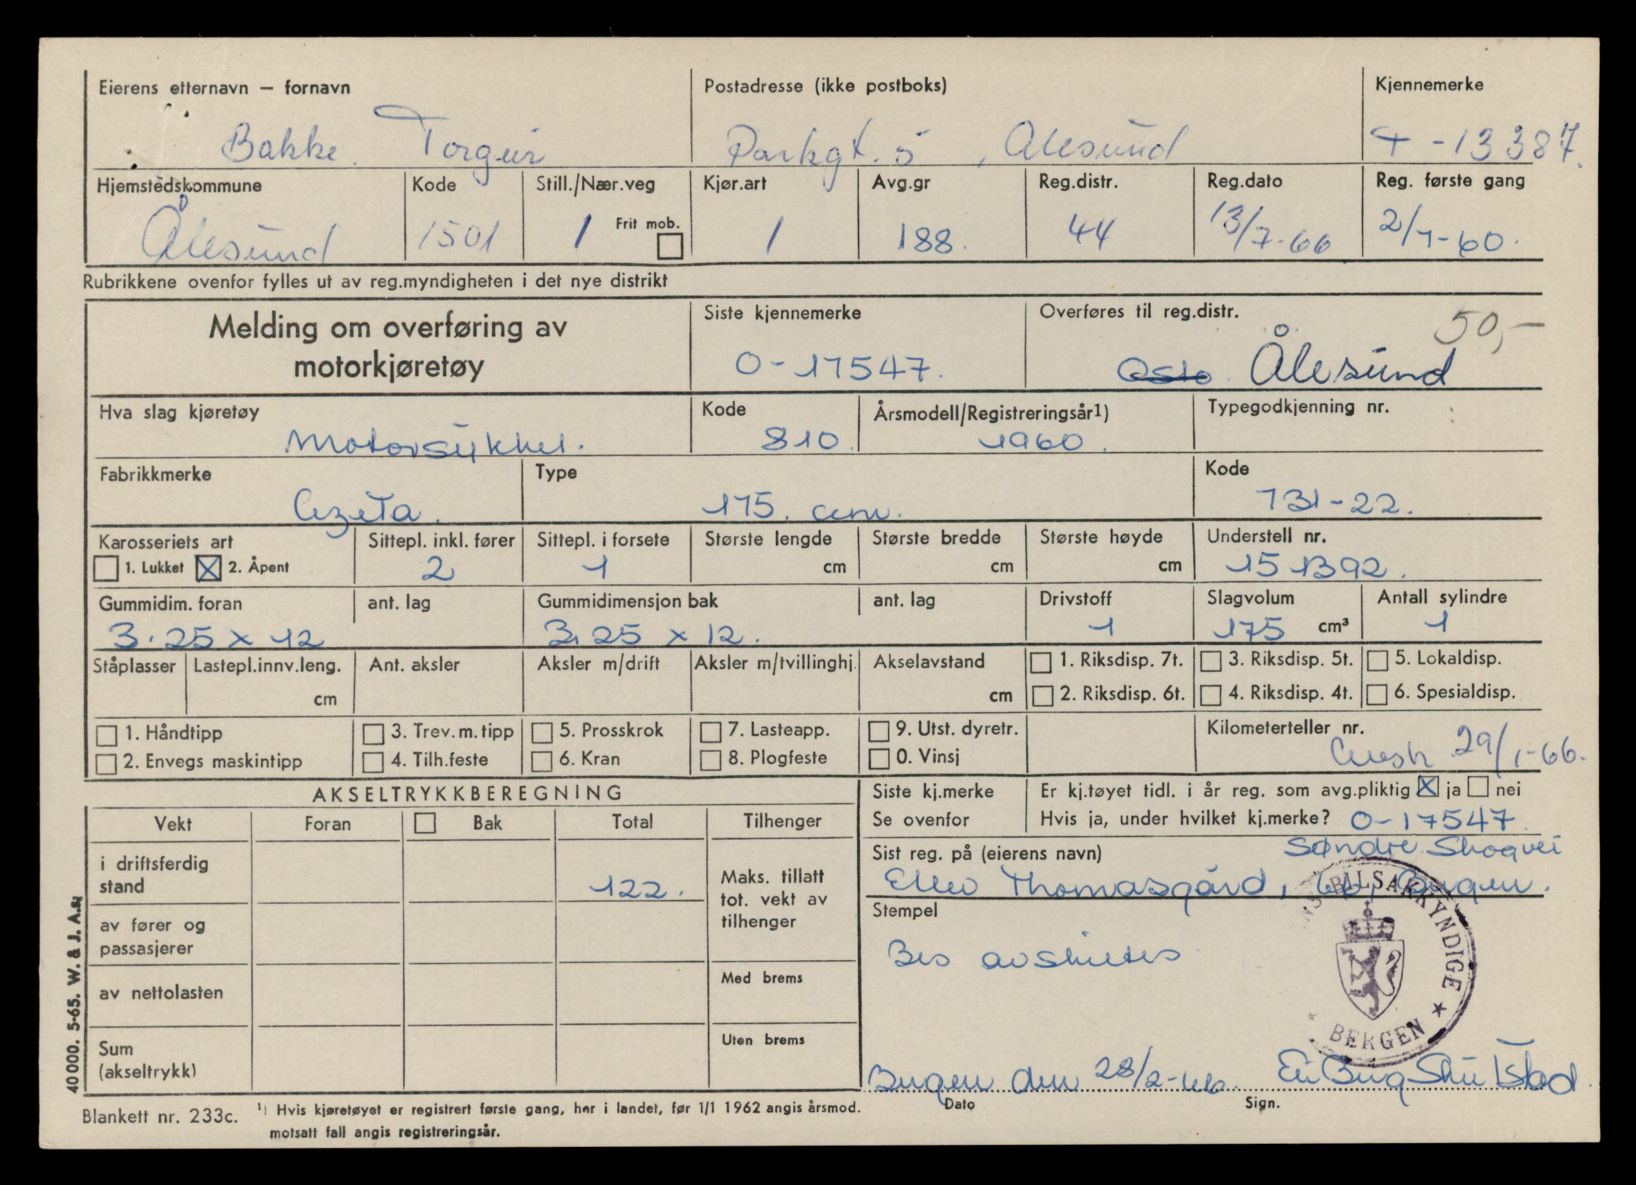 Eierens etternavn — fornavn Postadresse (ikke postboks) Kjennemerke
Bakke Torgeir Parkgt. 5, Ålesund T-13387
Hjemstedskommune Kode Still./Nær.veg Kjør.art Avg.gr Reg.distr. Reg.dato Reg. første gang
Ålesund 1501 1 Frit mob. 1 188. 44 13/7-66 2/7-60.
Rubrikkene ovenfor fylles ut av reg.myndigheten i det nye distrikt
Melding om overføring av motorkjøretøy
Siste kjennemerke Overføres til reg.distr. 50,-
O-17547. Oslo Ålesund
Hva slag kjøretøy Kode Årsmodell/Registreringsår1) Typegodkjenning nr.
Motorsykkel. 810. 1960.
Fabrikkmerke Type Kode
Cezeta. 175. ccm. 731-22.
Karosseriets art Sittepl. inkl. fører Sittepl. i forsete Største lengde Største bredde Største høyde Understell nr.
1. Lukket 2. Åpent 2 1 cm cm cm 151392.
Gummidim. foran ant. lag Gummidimensjon bak ant. lag Drivstoff Slagvolum Antall sylindre
3.25 x 12 3.25 x 12. 1 175 cm³ 1
Ståplasser Lastepl.innv.leng. Ant. aksler Aksler m/drift Aksler m/tvillinghj. Akselavstand 1. Riksdisp. 7t. 3. Riksdisp. 5t. 5. Lokaldisp.
cm cm 2. Riksdisp. 6t. 4. Riksdisp. 4t. 6. Spesialdisp.
1. Håndtipp 3. Trev.m.tipp 5. Prosskrok 7. Lasteapp. 9. Utst. dyretr. Kilometerteller nr.
2. Envegs maskintipp 4. Tilh.feste 6. Kran 8. Plogfeste 0. Vinsj 29/1-66.
AKSELTRYKKBEREGNING
Siste kj.merke Er kj.tøyet tidl. i år reg. som avg.pliktig ja nei
Se ovenfor Hvis ja, under hvilket kj.merke? O-17547
Vekt Foran Bak Total Tilhenger
Sist reg. på (eierens navn) Søndre Skogvei
Thomasgård, Bergen.
i driftsferdig stand 122.
Maks. tillatt tot. vekt av tilhenger
Stempel
av fører og passasjerer
Bes avskiltes
BILSAKKYNDIGE
BERGEN
av nettolasten Med brems
Sum (akseltrykk) Uten brems
Bergen den 28/2-66.
Dato Sign.
40000. 5-65. W. & J. A.s.
Blankett nr. 233c. ¹) Hvis kjøretøyet er registrert første gang, her i landet, før 1/1 1962 angis årsmod.
motsatt fall angis registreringsår.